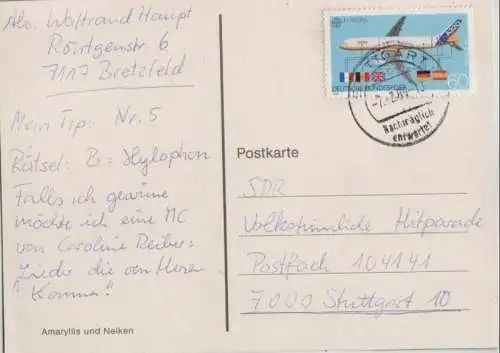 Abs. Waltraud Haupt
Röntgenstr. 6
7117 Bretzfeld
Mein Tip: Nr. 5
Rätsel: B = Xylophon
Falls ich gewinne
möchte ich eine MC
von Caroline Reiber:
Lieder die von Herzen
Kommen!"
Amaryllis und Nelken
Postkarte
SDR
Volkstümliche Hitparade
Postfach 104141
7000 Stuttgart 10
EUROPA
60
DEUTSCHE BUNDESPOST
Nachträglich
entwertet